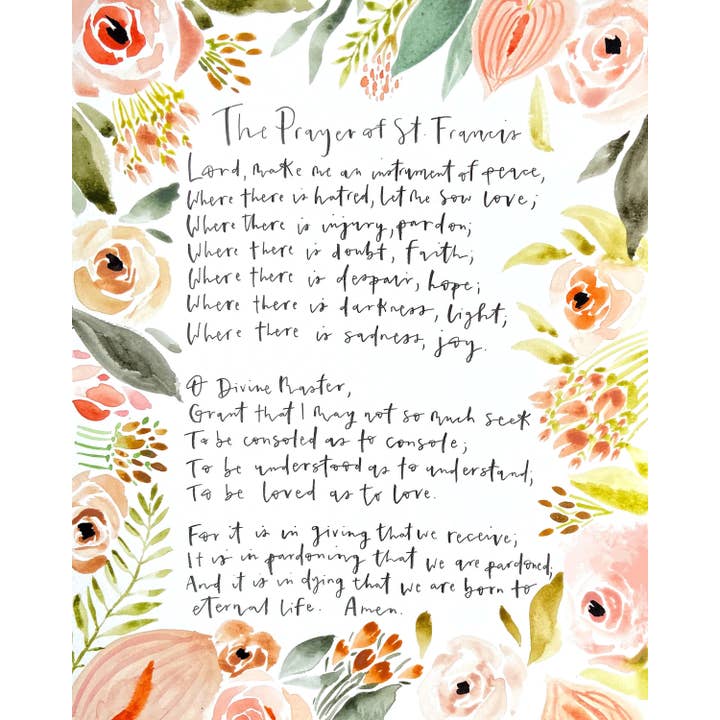 The Prayer of St. Francis
Lord, make me an instrument of peace,
Where there is hatred, let me sow love;
Where there is injury, pardon;
Where there is doubt, faith;
Where there is despair, hope;
Where there is darkness, light;
Where there is sadness, joy.
O Divine Master,
Grant that I may not so much seek
To be consoled as to console;
To be understood as to understand;
To be loved as to love.
For it is in giving that we receive;
It is in pardoning that we are pardoned;
And it is in dying that we are born to
eternal life. Amen.